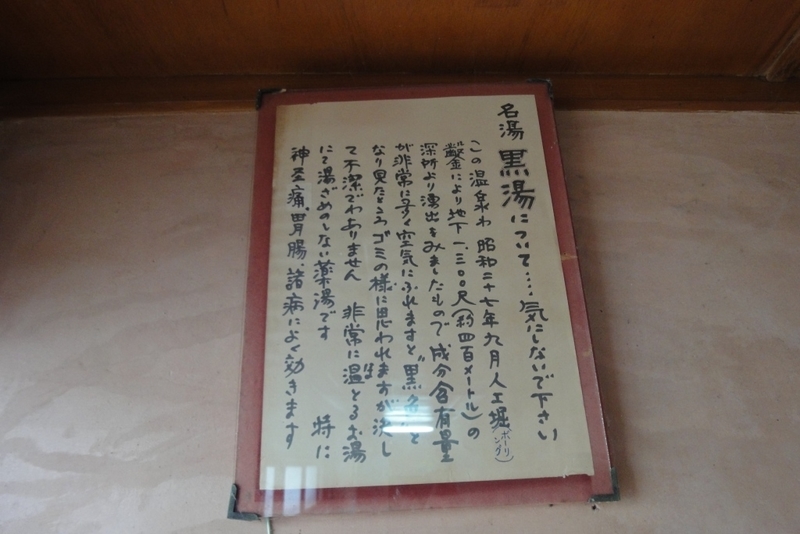 名湯 黒湯について……気にしないで下さい
この温泉わ 昭和二十七年九月人工堀(ボーリング)
鑿により地下一、三〇〇尺(約四百メートル)の
深所より湧出をみましたもので 成分含有量
が非常に多く空気にふれますと"黒色"と
なり見たところゴミの様に思われますが決し
て不潔でわありません 非常に温とるお湯
にて湯ざめのしない薬湯です 特に
神圣痛、胃腸、諸病によく効きます